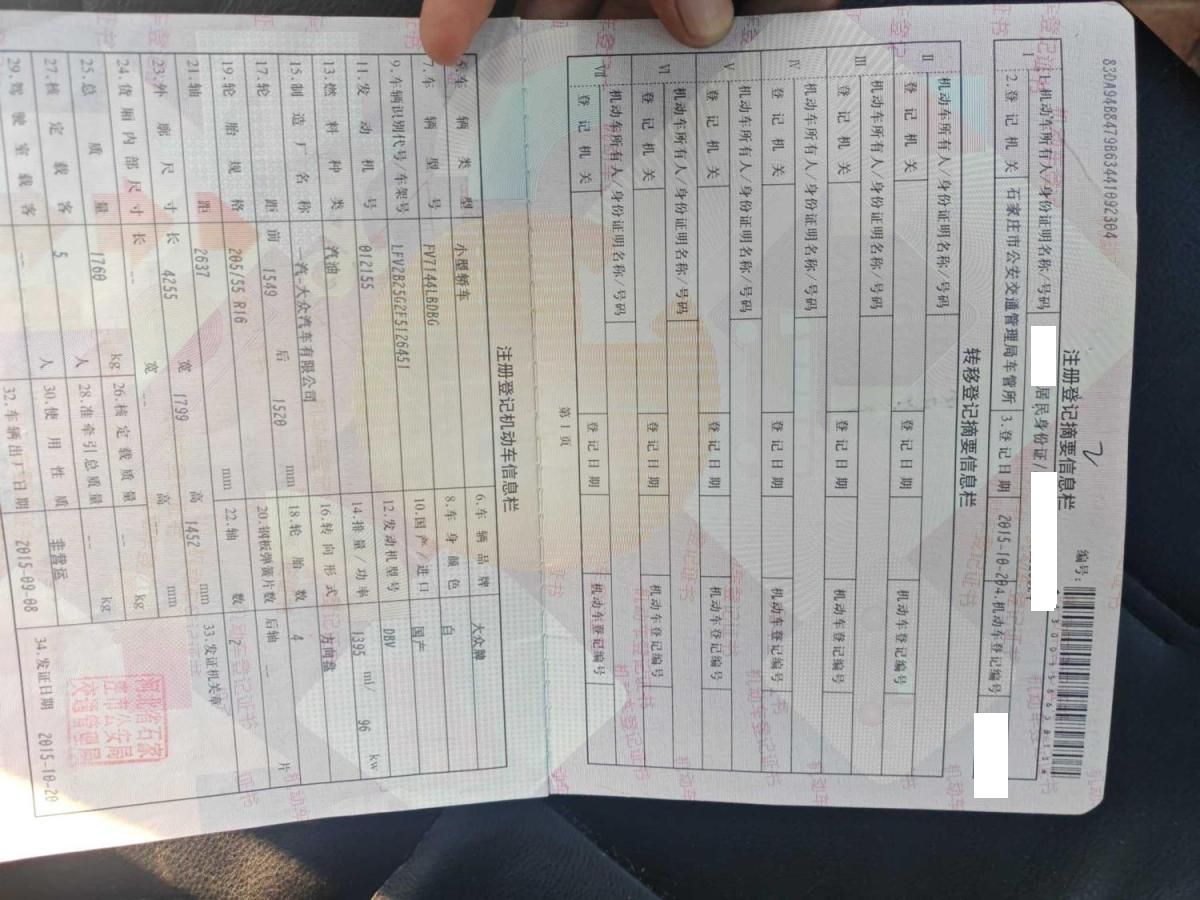 830A94B8479B63441092304
注册登记摘要信息栏
编号:
2
I 1.机动车所有人/身份证明名称/号码 居民身份证/
2.登记机关 石家庄市公安交通管理局车管所 3.登记日期 2015-10-20 4.机动车登记编号
转移登记摘要信息栏
II 机动车所有人/身份证明名称/号码
登记机关 登记日期 机动车登记编号
III 机动车所有人/身份证明名称/号码
登记机关 登记日期 机动车登记编号
IV 机动车所有人/身份证明名称/号码
登记机关 登记日期 机动车登记编号
V 机动车所有人/身份证明名称/号码
登记机关 登记日期 机动车登记编号
VI 机动车所有人/身份证明名称/号码
登记机关 登记日期 机动车登记编号
VII 机动车所有人/身份证明名称/号码
登记机关 登记日期 机动车登记编号
第1页
注册登记机动车信息栏
5.车辆类型 小型轿车 6.车辆品牌 大众牌
7.车辆型号 FV7144LBDBG 8.车身颜色 白
9.车辆识别代号/车架号 LFV2B25G2F5126451 10.国产/进口 国产
11.发动机号 012155 12.发动机型号 DBV
13.燃料种类 汽油 14.排量/功率 1395 ml/ 96 kw
15.制造厂名称 一汽-大众汽车有限公司 16.转向形式 方向盘
17.轮距 前 1549 后 1520 mm 18.轮胎数 4
19.轮胎规格 205/55 R16 20.钢板弹簧片数 后轴 -- 片
21.轴距 2637 mm 22.轴数 2
23.外廓尺寸 长 4255 宽 1799 高 1452 mm 33.发证机关章
24.货厢内部尺寸 长 -- 宽 -- 高 -- mm
25.总质量 1760 kg 26.核定载质量 -- kg
27.核定载客 5 人 28.准牵引总质量 -- kg
29.驾驶室载客 -- 人 30.使用性质 非营运
32.车辆出厂日期 2015-09-08 34.发证日期 2015-10-20
河北省石家
庄市公安局
交通管理局